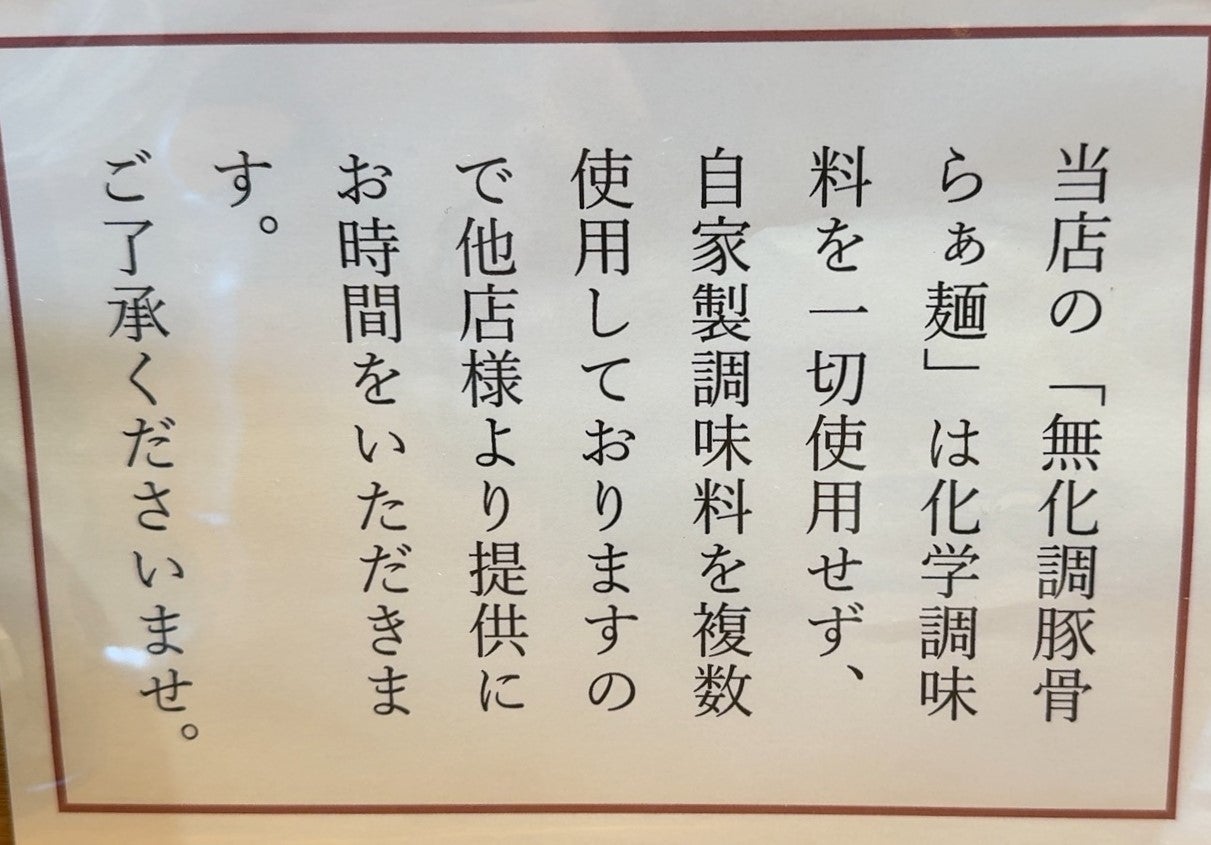 当店の「無化調豚骨
らぁ麺」は化学調味
料を一切使用せず、
自家製調味料を複数
使用しておりますの
で他店様より提供に
お時間をいただきま
す。
ご了承くださいませ。